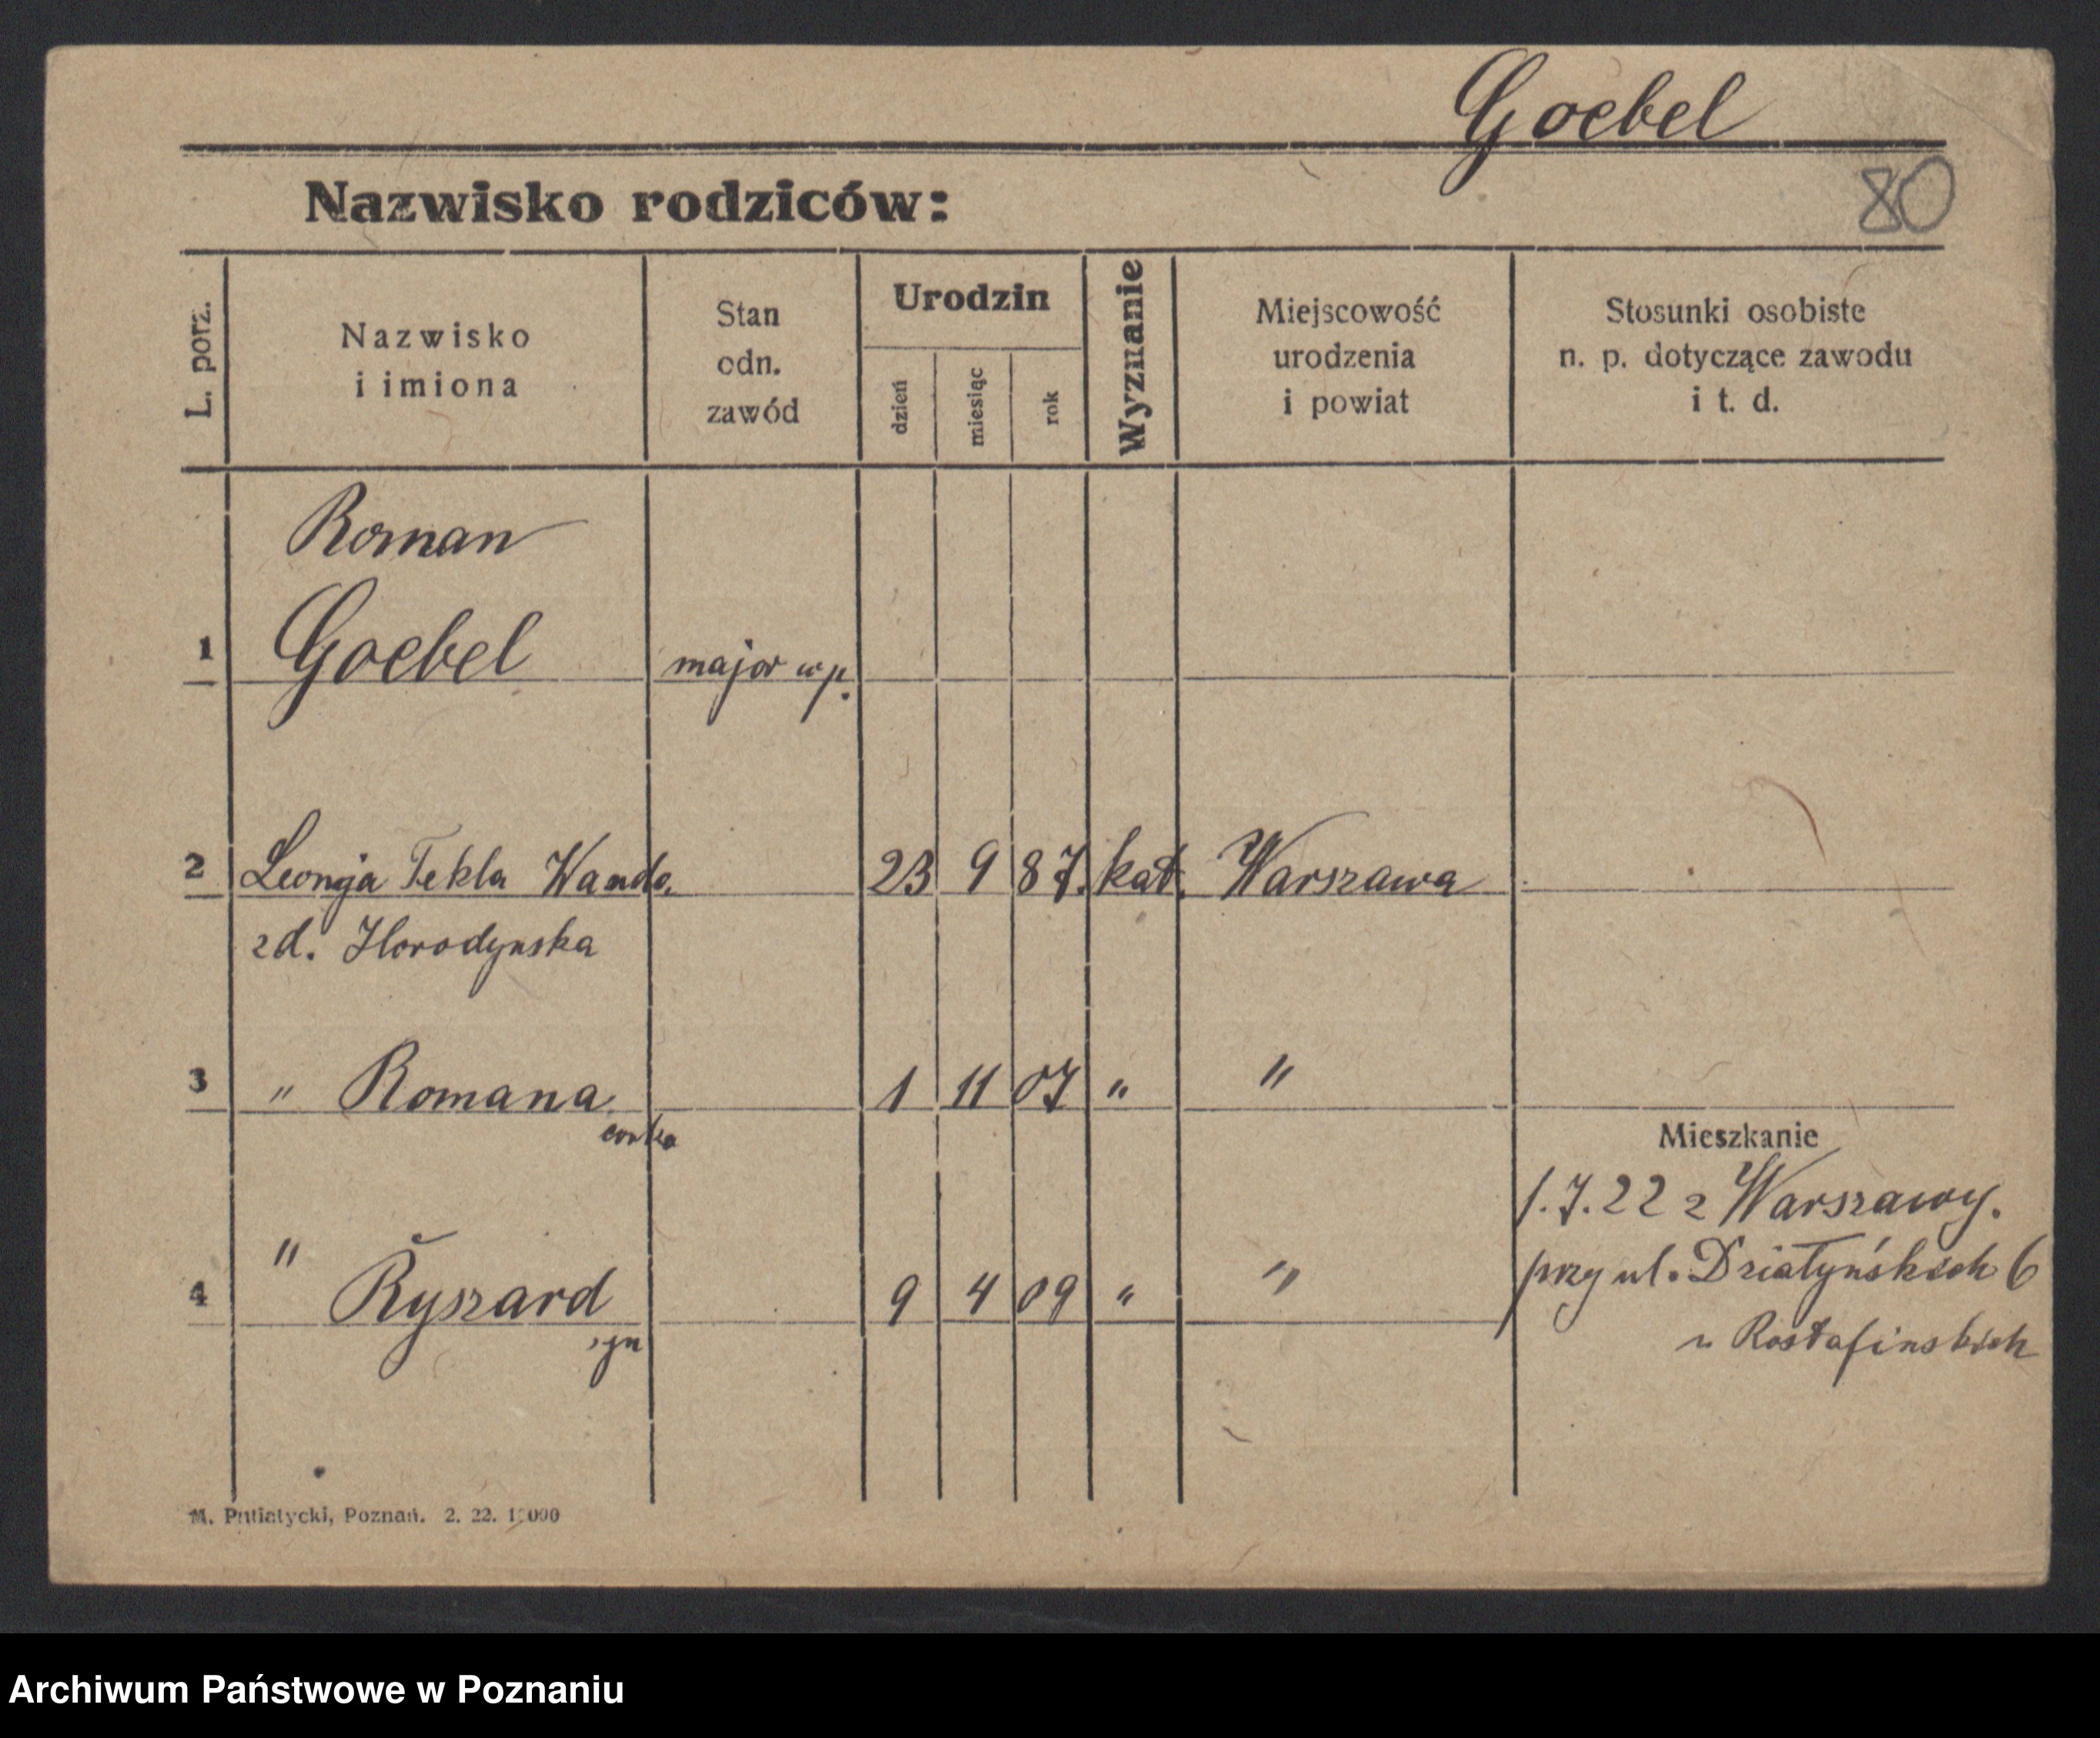 Goebel
Nazwisko rodziców:
80
L. porz.
Nazwisko
i imiona
Stan
odn.
zawód
Urodzin
dzień
miesiąc
rok
Wyznanie
Miejscowość
urodzenia
i powiat
Stosunki osobiste
n. p. dotyczące zawodu
i t. d.
Roman
1 Goebel major wp.
2 Leonja Tekla Wanda 23 9 87. kat. Warszawa
zd. Horodynska
3 " Romana 1 11 07 " "
corka
Mieszkanie
1.7.22 z Warszawy.
przy ul. Działyńskich 6
u Rostafinskich
"
4 Ryszard 9 4 09 " "
syn
M. Putiatycki, Poznań. 2. 22.
Archiwum Państwowe w Poznaniu